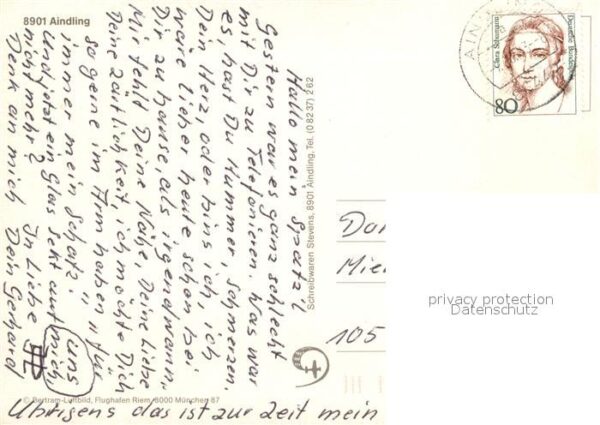 8901 Aindling
Hallo mein Spatz'l
Gestern war es ganz schlecht
mit Dir zu Telefonieren. Was war
es, hast Du Kummer, Schmerzen.
Dein Herz, oder bins ich, ich
wäre lieber heute schon bei
Dir zu hause, als irgendwann.
Mir fehlt Deine Nähe Deine Liebe
Deine Zärtlichkeit, ich möchte Dich
so gerne im Arm haben " für
immer mein Schatz! " uns
Und jetzt ein Glas Sekt auf mich,
nicht mehr? In Liebe
Denk an mich Dein Gerhard
© Bertram-Luftbild, Flughafen Riem, 8000 München 87
Übrigens das ist zur Zeit mein
Schreibwaren Stevens, 8901 Aindling, Tel. (0 82 37) 2 62
Clara Schumann
Deutsche Bundespost
80
AIN
Mie
105
privacy protection
Datenschutz